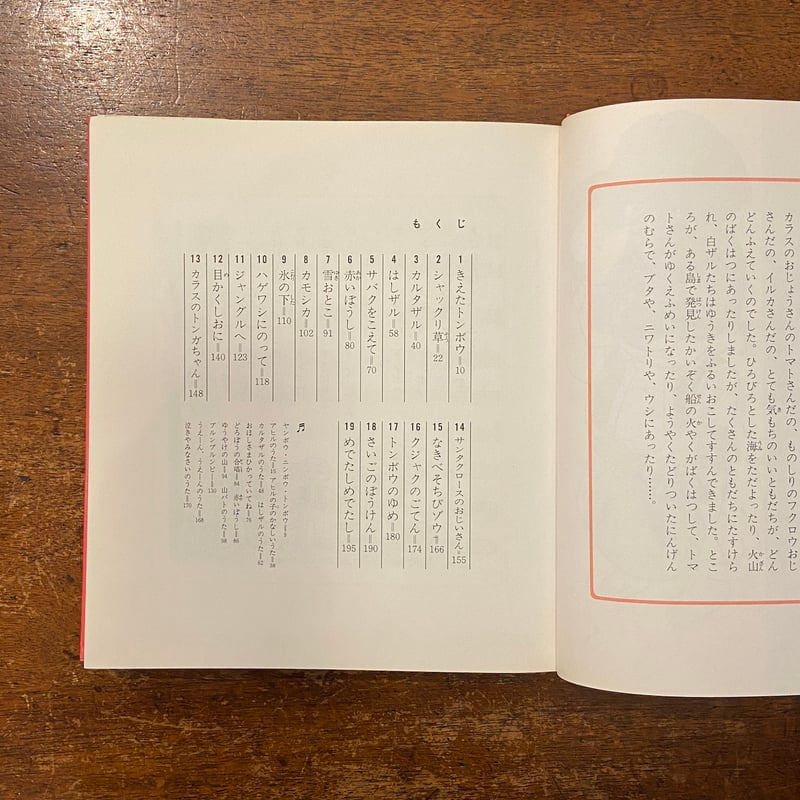 カラスのおじょうさんのトマトさんだの、ものしりのフクロウおじ
さんだの、イルカさんだの、とても気もちのいいともだちが、どん
どんふえていくのでした。ひろびろとした海をただよったり、火山
のばくはつにあったりしましたが、たくさんのともだちにたすけら
れ、白ザルたちはゆうきをふるいおこしてすすんできました。とこ
ろが、ある島で発見したかいぞく船の火やくがばくはつして、トマ
トさんがゆくえふめいになったり、ようやくたどりついたにんげん
のむらで、ブタや、ニワトリや、ウシにあったり……。
もくじ
1 きえたトンボウ=10
2 シャックリ草=22
3 カルタザル=40
4 はしザル=58
5 サバクをこえて=70
6 赤いぼうし=80
7 雪おとこ=91
8 カモシカ=102
9 氷の下=110
10 ハゲワシにのって=118
11 ジャングルへ=123
12 目かくしおに=140
13 カラスのトンガちゃん=148
14 サンタクロースのおじいさん=155
15 なきべそちびゾウ=166
16 クジャクのごてん=174
17 トンボウのゆめ=180
18 さいごのぼうけん=190
19 めでたしめでたし=195
ヤンボウ・ニンボウ・トンボウ=9
アヒルのうた=15 アヒルの子のかなしいうた=38
カルタザルのうた=48 はしザルのうた=62
おほしさまひかっていてね=76
どろぼうの合唱=84 赤いぼうし=86
ゆうやけの山=94 山バトのうた=98
ブルンブルンビー=130
うえーん、うえーんのうた=168
泣きやみなさいのうた=170